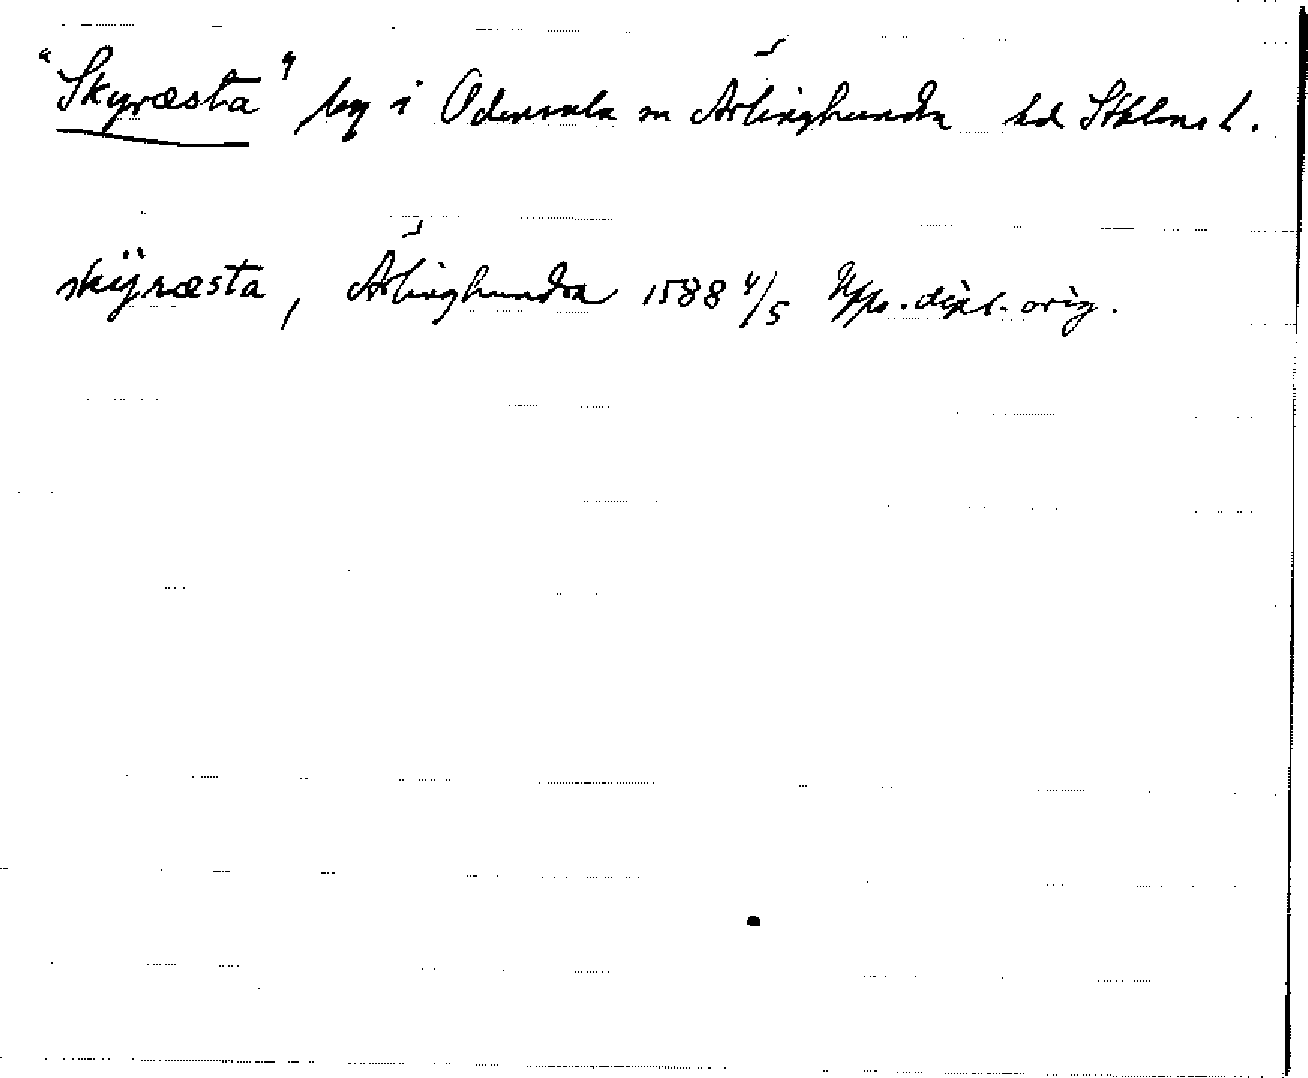 "Skyræsta" by i Odensala sn Ärlinghundra hd Sthlms l.
skÿræsta, Ärlinghundra 1588 4/5 Upps. dipl. orig.